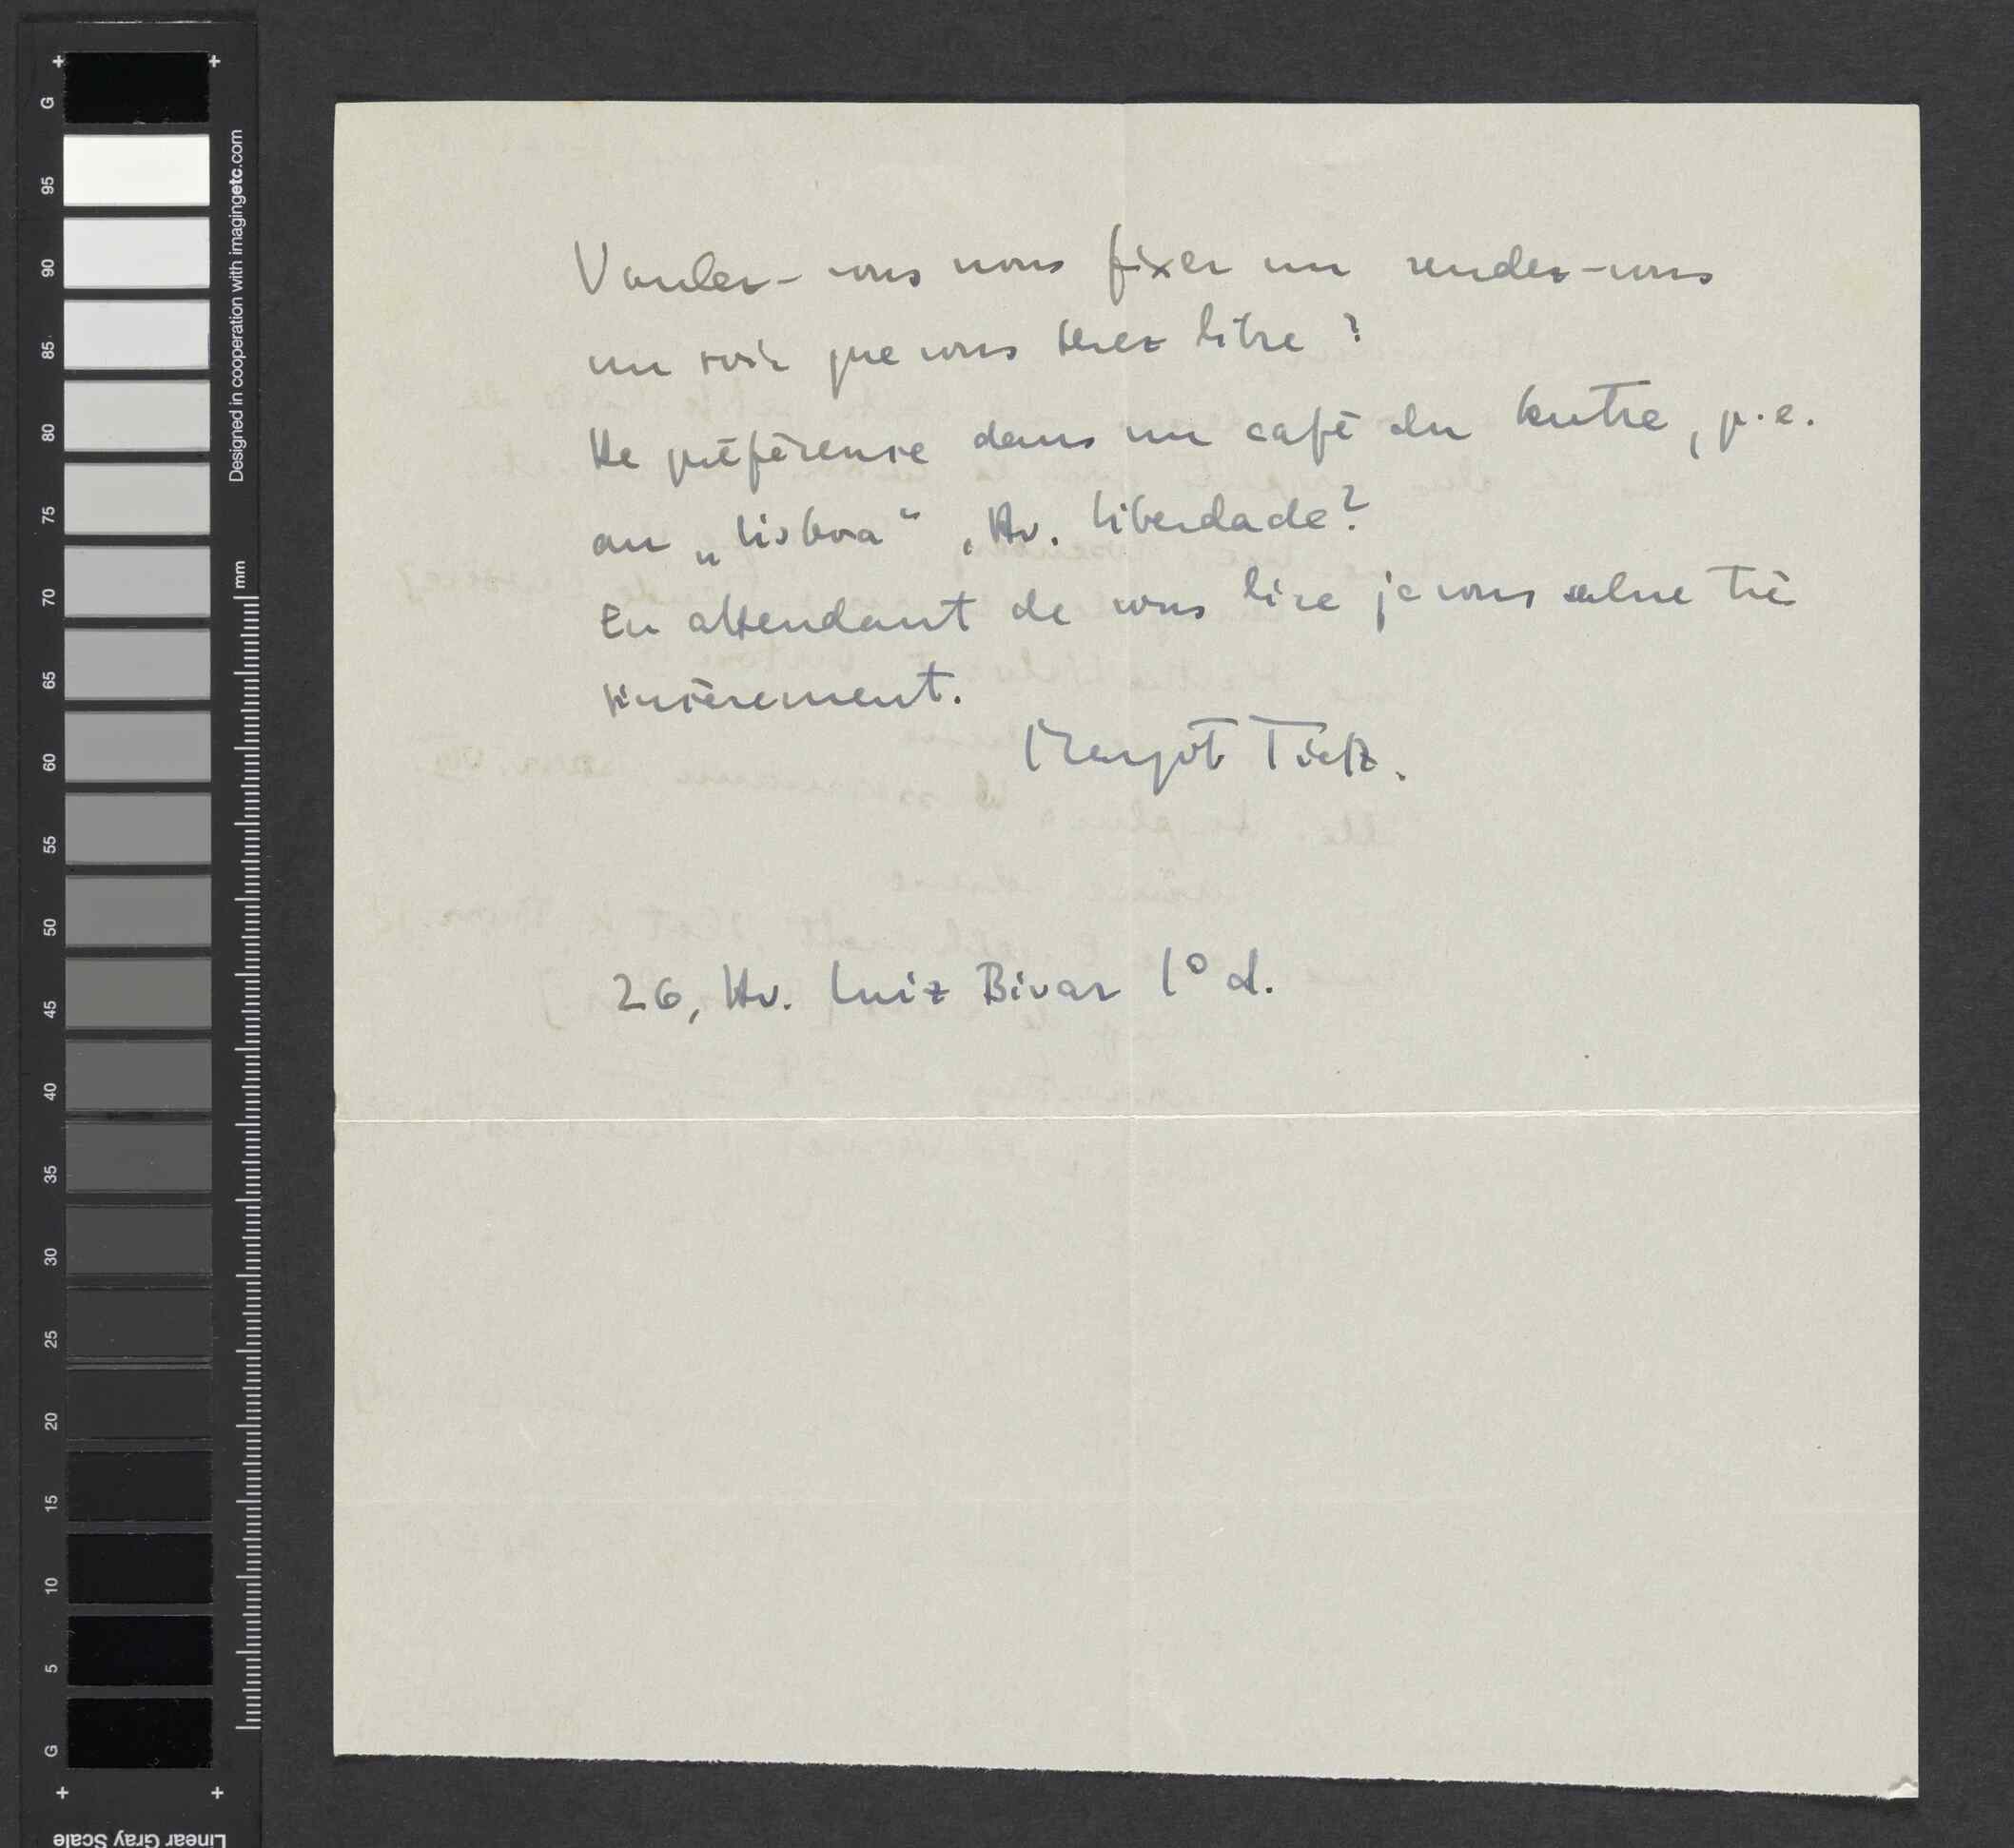 Voulez-vous nous fixer un rendez-vous
un soir que vous serez libre ?
De préférence dans un café du centre, p.e.
au „Lisboa“, Av. Liberdade?
En attendant de vous lire je vous salue très
sincèrement.
Margot Tietz.
26, Av. Luiz Bivar 1º d.
G
95
90
85
80
75
70
65
60
55
50
45
40
35
30
25
20
15
10
5
G
Designed in cooperation with imagingetc.com
mm
Linear Gray Scale